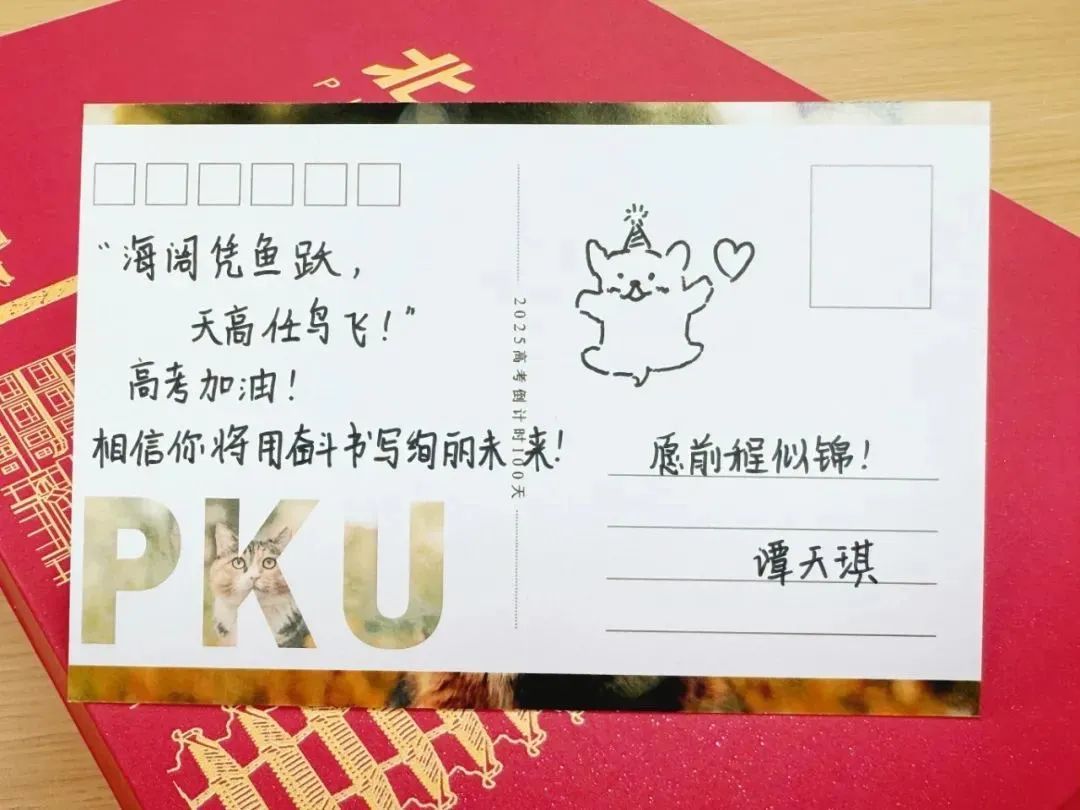 北
P
“海阔凭鱼跃，
天高任鸟飞！”
高考加油！
相信你将用奋斗书写绚丽未来！
PKU
2025高考倒计时100天
愿前程似锦！
谭天琪